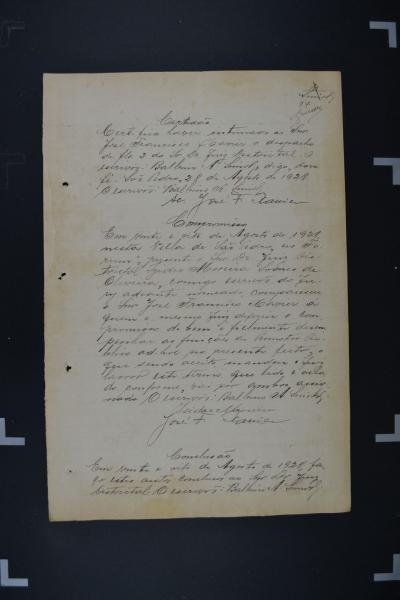 Certidão
Certifico haver intimado ao Snr
José Francisco Xavier o despacho
de fls 2 do Sr Dr Juiz Districtal. O
escrivão: Balbino A. digo, dou
fé. São Pedro, 28 de Agosto de 1928
O escrivão: Balbino
José F. Xavier
Compromisso
Em vinte e oito de Agosto de 1928
nesta Villa de São Pedro, no Fo
rum, presente o Snr Dr Juiz Dis
trictal Pedro Moreira de
Oliveira, comigo escrivão do Jui
zo adiante nomeado, compareceu
o Snr José Francisco Xavier a
quem o mesmo Juiz deferiu o com
promisso de bem e fielmente desem
penhar as funcções de Promotor Pu
blico ad-hoc no presente feito, o
que sendo aceito mandou o Juiz
lavrar este termo que lido, e acha
do conforme, vai por ambos assig
nado. O escrivão: Balbino A.
José F. Xavier
Conclusão
Em vinte e oito de Agosto de 1928 fa
ço estes autos conclusos ao Snr Dr Juiz
Districtal. O escrivão: Balbino A.